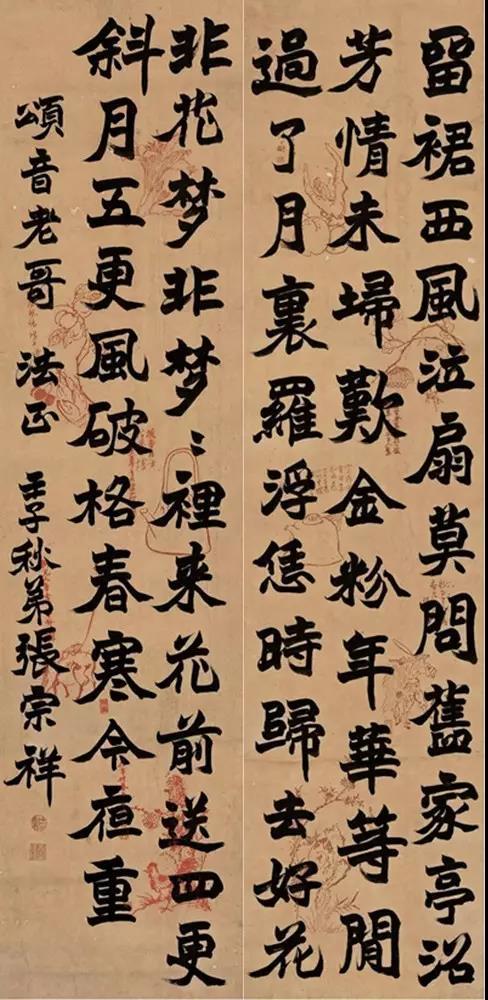 留裙西風泣扇莫問舊家亭沼
芳情未埽歎金粉年華等閒
過了月裏羅浮恁時歸去好花
非花梦非梦〻裡来花前送四更
斜月五更風破格春寒今夜重
頌音老哥 法正 壬子秋弟張宗祥